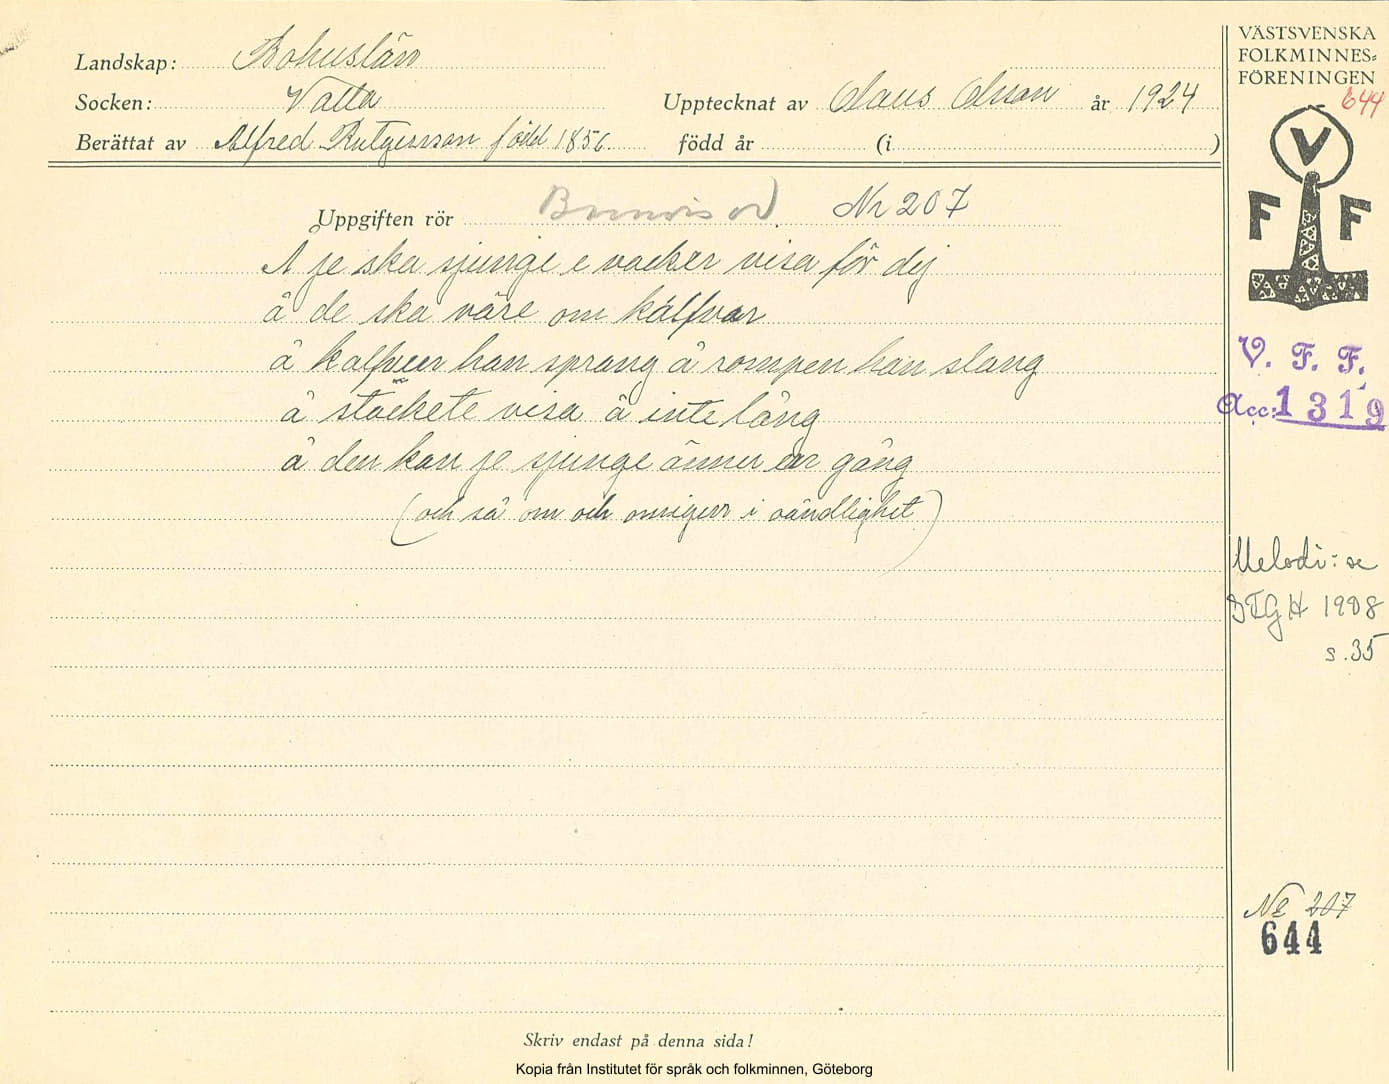 Landskap: Bohuslän
Socken: Valla
Upptecknat av Claus Olsson år 1924
Berättat av Alfred Rutgersson född 1856
född år (i )
Uppgiften rör Barnvisor Nr 207
Å je ska sjunge e vacker visa för dej
å de ska väre om kalfvar
å kalfven han sprang å rompen han slang
å stöckete visa å inte lång
å den kan je sjunge änner en gång
(och så om och omigen i oändlighet)
Skriv endast på denna sida!
Kopia från Institutet för språk och folkminnen, Göteborg
VÄSTSVENSKA
FOLKMINNES-
FÖRENINGEN
644
V
F F
V. F. F.
Acc: 1319
Melodi: se
1908
s. 35
207
644